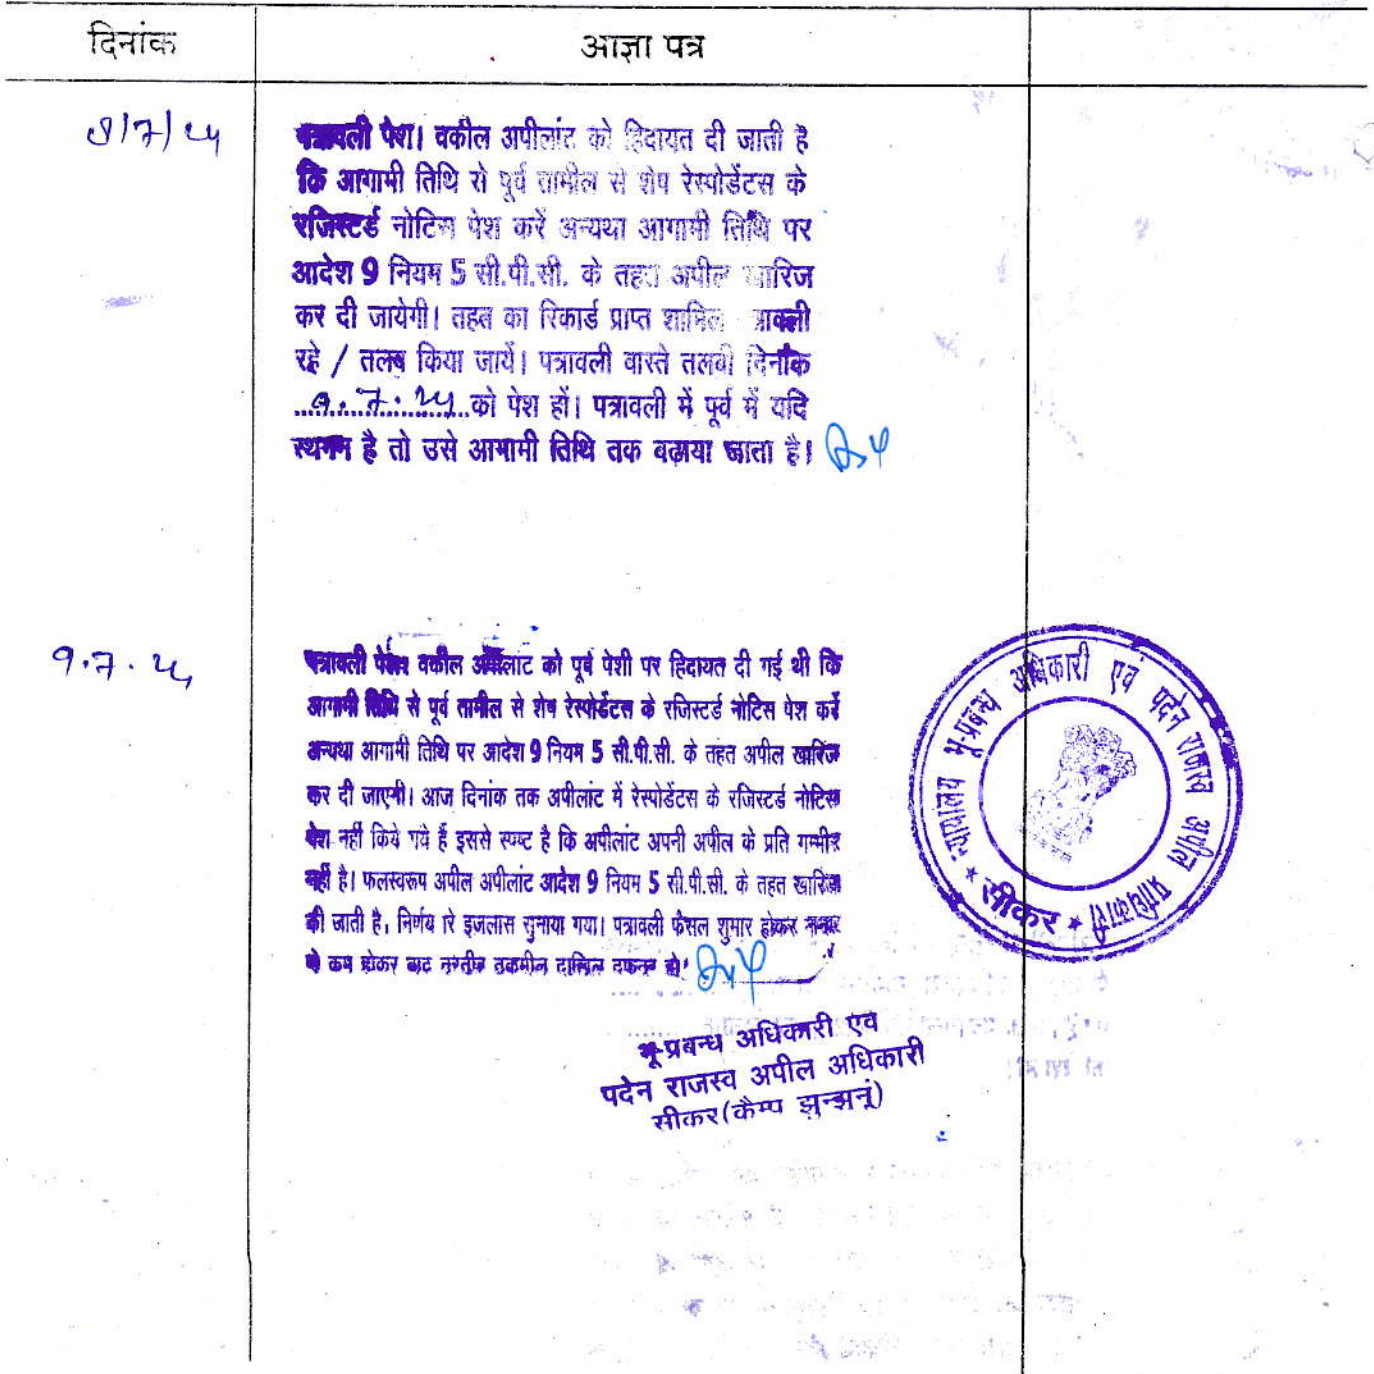 दिनांक
आज्ञा पत्र
पत्रावली पेश। वकील अपीलांट को हिदायत दी जाती है
कि आगामी तिथि से पूर्व तामील से शेष रेस्पोडेंटस के
रजिस्टर्ड नोटिस पेश करें अन्यथा आगामी तिथि पर
आदेश 9 नियम 5 सी.पी.सी. के तहत अपील खारिज
कर दी जायेगी। तहत का रिकार्ड प्राप्त शामिल पत्रावली
रहे / तलब किया जायें। पत्रावली वास्ते तलबी दिनांक
को पेश हों। पत्रावली में पूर्व में यदि
स्थगन है तो उसे आगामी तिथि तक बढ़ाया जाता है।
पत्रावली पेश। वकील अपीलांट को पूर्व पेशी पर हिदायत दी गई थी कि
आगामी तिथि से पूर्व तामील से शेष रेस्पोडेंटस के रजिस्टर्ड नोटिस पेश करें
अन्यथा आगामी तिथि पर आदेश 9 नियम 5 सी.पी.सी. के तहत अपील खारिज
कर दी जाएगी। आज दिनांक तक अपीलांट में रेस्पोडेंटस के रजिस्टर्ड नोटिस
पेश नहीं किये गये हैं इससे स्पष्ट है कि अपीलांट अपनी अपील के प्रति गम्भीर
नहीं है। फलस्वरूप अपील अपीलांट आदेश 9 नियम 5 सी.पी.सी. के तहत खारिज
की जाती है, निर्णय रे इजलास सुनाया गया। पत्रावली फैसल शुमार होकर नम्बर
से कम होकर बाद तरतीब तकमील दाखिल दफ्तर हो।
न्यायालय भू-प्रबन्ध अधिकारी एवं पदेन राजस्व अपील प्राधिकारी
* सीकर *
भू-प्रबन्ध अधिकारी एवं
पदेन राजस्व अपील अधिकारी
सीकर(कैम्प झुन्झनूं)